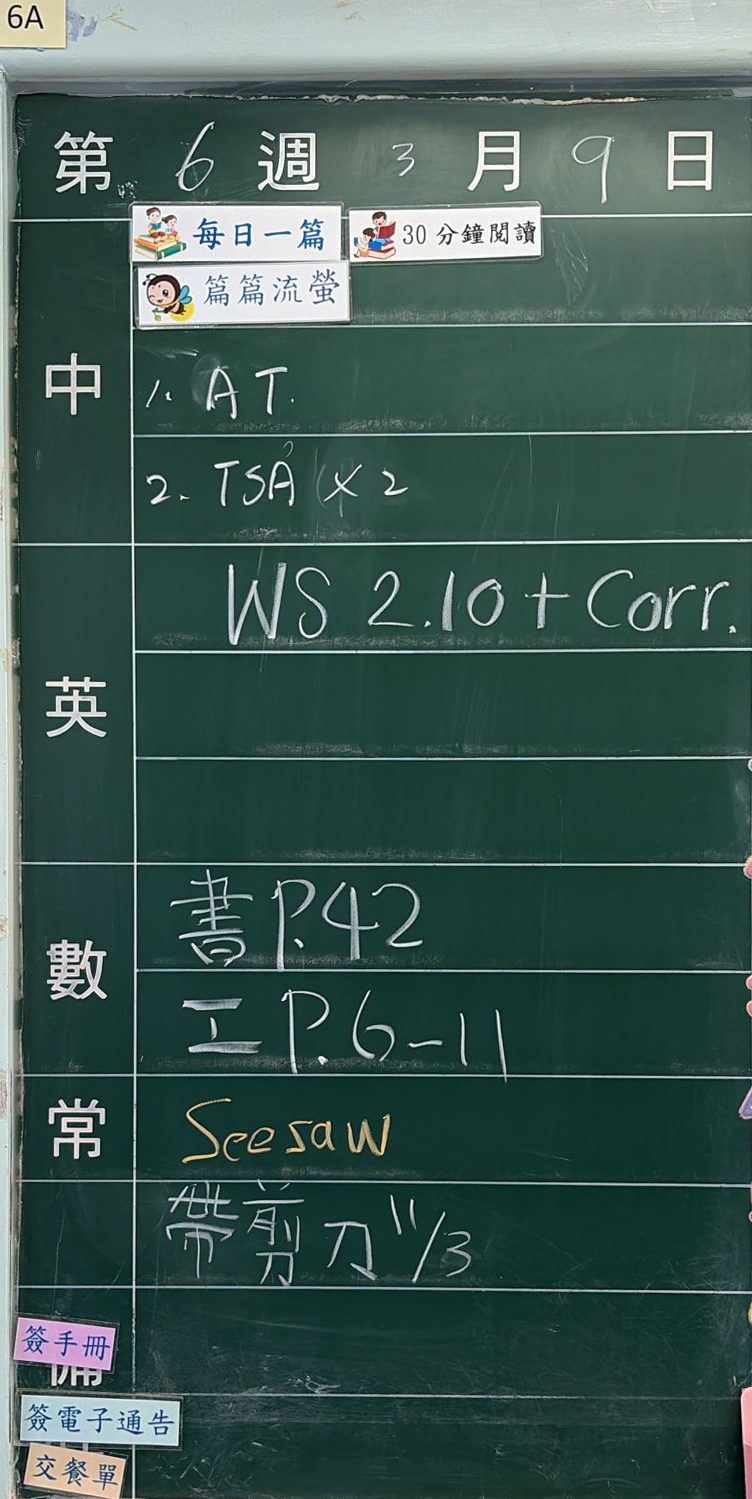 6A
第 6 週 3 月 9 日
每日一篇 30 分鐘閱讀
篇篇流螢
中
1. A T.
2. TSA × 2
英
WS 2.10 + Corr.
數
書 P.42
工 P.6-11
常
Seesaw
帶剪刀 11/3
簽手冊
備
簽電子通告
交餐單